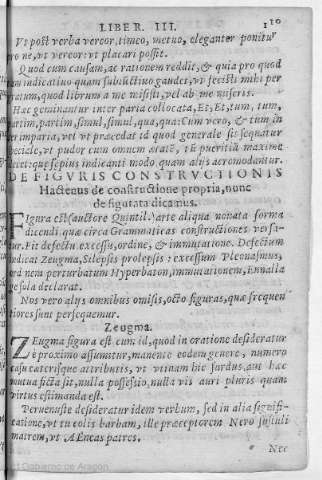 LIBER III. 110
Vt post verba vereor, timeo, metuo, eleganter ponitur
pro ne, vt vereor: vt placari possit.
Quod cum causam, ac rationem reddit, & quia pro quod
tam indicatiuo quam subiũctiuo gaudet, vt fecisti mihi per
gratum, quod librum a me misisti, vel ab me miseris.
Hac geminantur inter paria collocata, Et, Et, tum, tum,
partim, partim, simul, simul, qua, qua: Cum vero, & tum in
ter imparia, vel vt præcedat id quod generale sit sequatur
speciale, vt pudor cum omnem ætatẽ, tũ pueritiã maxime
decet: que sepius indicanti modo quam alijs acomodantur.
DE FIGVRIS CONSTRVCTIONIS
Hactenus de constructione propria, nunc
de figurata dicamus.
FIgura est (auctore Quintil.) arte aliqua nouata forma
dicendi, quæ circa Grammaticas constructiones versa-
tur. Fit defectu excessu, ordine, & immutatione. Defectum
indicat Zeugma, Selepsis prolepsis: excessum Pleonasmus,
ordinem perturbatum Hyperbaton, immutationem, Ennalla
ge sola declarat.
Nos vero alijs omnibus omisis, octo figuras, quæ frequen
tiores sunt persequemur.
Zeugma.
ZEugma figura est cum id, quod in oratione desideratur
e proximo assumitur, manente eodem genere, numero
casu caterisque attributis, vt vtinam hic surdus, aut hæc
mutua facta sit, nulla possessio, nulla vis auri pluris quam
virtus estimanda est.
Peruenuste desideratur idem verbum, sed in alia signifi-
catione, vt tu colis barbam, ille præceptorem Nero sustuli
matrem, vt AEneas patres.
Nec
Gobierno de Aragón